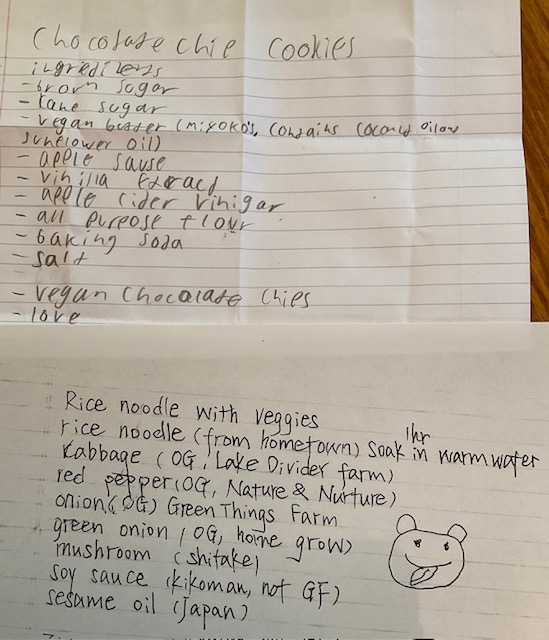 Chocolate chip cookies
ingredilents
- brown sugar
- cane sugar
- vegan butter (miyoko's, contains coconut oil or
sunflower oil)
- apple sause
- vinilla extract
- apple cider vinigar
- all purpose flour
- baking soda
- salt
- vegan chocalate chips
- love
Rice noodle with veggies
rice noodle (from hometown) soak 1hr in warm water
kabbage (OG, Lake Divider farm)
red pepper (OG, Nature & Nurture)
onion (OG) Green Things Farm
green onion (OG, home grow)
mushroom (shitake)
soy sauce (kikoman, not GF)
sesame oil (Japan)